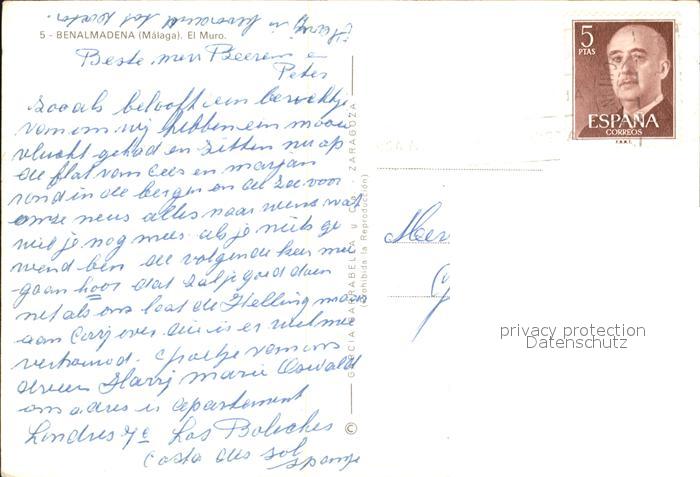 5 - BENALMADENA (Málaga). El Muro.
Beste mevr Beeren e
Peter
zooals belooft een berichtje
van ons wij hebben een mooie
vlucht gehad en zitten nu op
de flat van Cees en marjan
rond in de bergen en de zee voor
onze neus alles naar wens wat
wil je nog meer als je niets ge
wend ben de volgende keer mee
gaan hoor dat zal je goed doen
net als ons laat de Helling maar
aan Corrj over die is er wel mee
vertrouwd. Groetjes van ons
drieen Harrij marie Oswald
ons adres is apartement
Londres 7e Los Boliches
Costa del Sol
Spanje
GARCIA GARRABELLA y Cía. - ZARAGOZA
(Prohibida la Reproducción)
©
5
PTAS
ESPAÑA
CORREOS
F.N.M.T.
Mev
privacy protection
Datenschutz